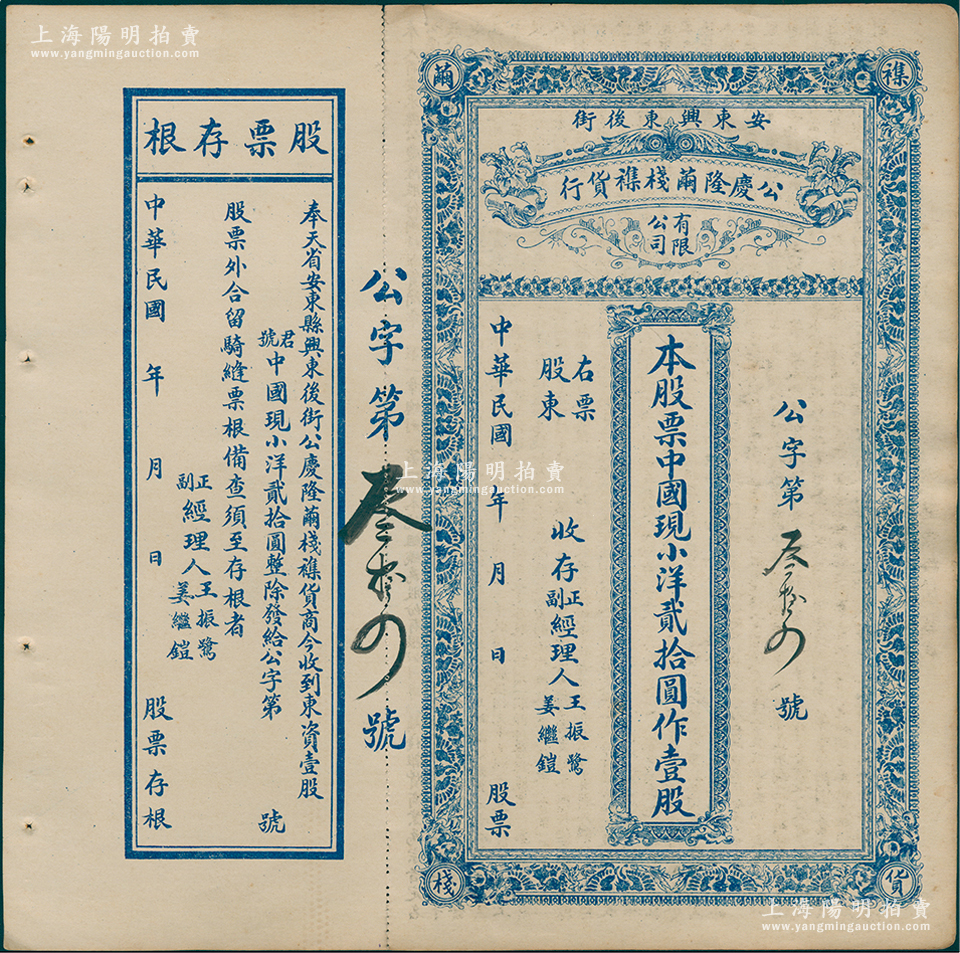 上海陽明拍賣
www.yangmingauction.com
繭
襍
棧
貨
安東興東後街
公慶隆繭棧襍貨行
有限公司
公字第叁拾四號
本股票中國現小洋貳拾圓作壹股
右票
股東
收存
正副經理人王振鷺姜繼鎧
中華民國 年 月 日 股票
公字第叁拾四號
股票存根
奉天省安東縣興東後街公慶隆繭棧襍貨商今收到東資壹股
君號中國現小洋貳拾圓整除發給公字第 號
股票外合留騎縫票根備查須至存根者
正副經理人王振鷺姜繼鎧
中華民國 年 月 日 股票存根
上海陽明拍賣
www.yangmingauction.com
上海陽明拍賣
www.yangmingauction.com